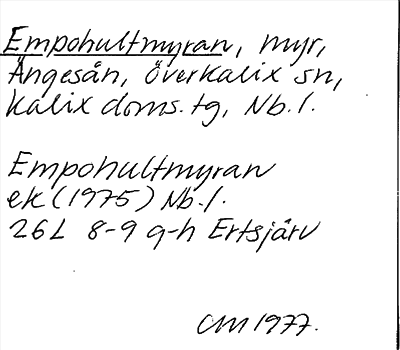 Empohultmyran, myr,
Ängesån, Överkalix sn,
Kalix doms. tg, Nb. l.
Empohultmyran
ek (1975) Nb. l.
26L 8-9 g-h Ertsjärv
CM 1977.